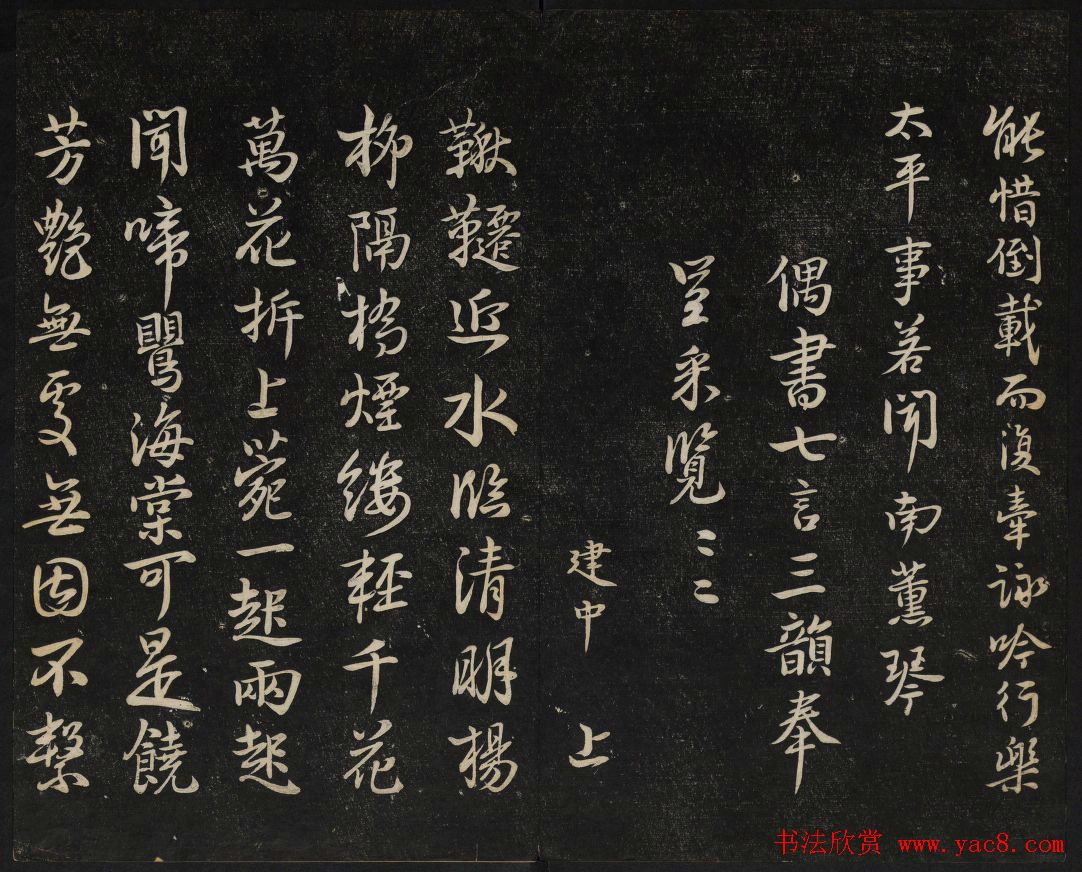 能惜倒載而復牽詠吟行樂
太平事若聞南薰琴
偶書七言三韻奉
呈采覽〻〻
建中 上
鞦韆近水臨清明楊
柳隔橋煙縷輕千花
萬花折上菀一起兩起
聞啼鸎海棠可是饒
芳艷無處無因不繫
书法欣赏 www.yac8.com